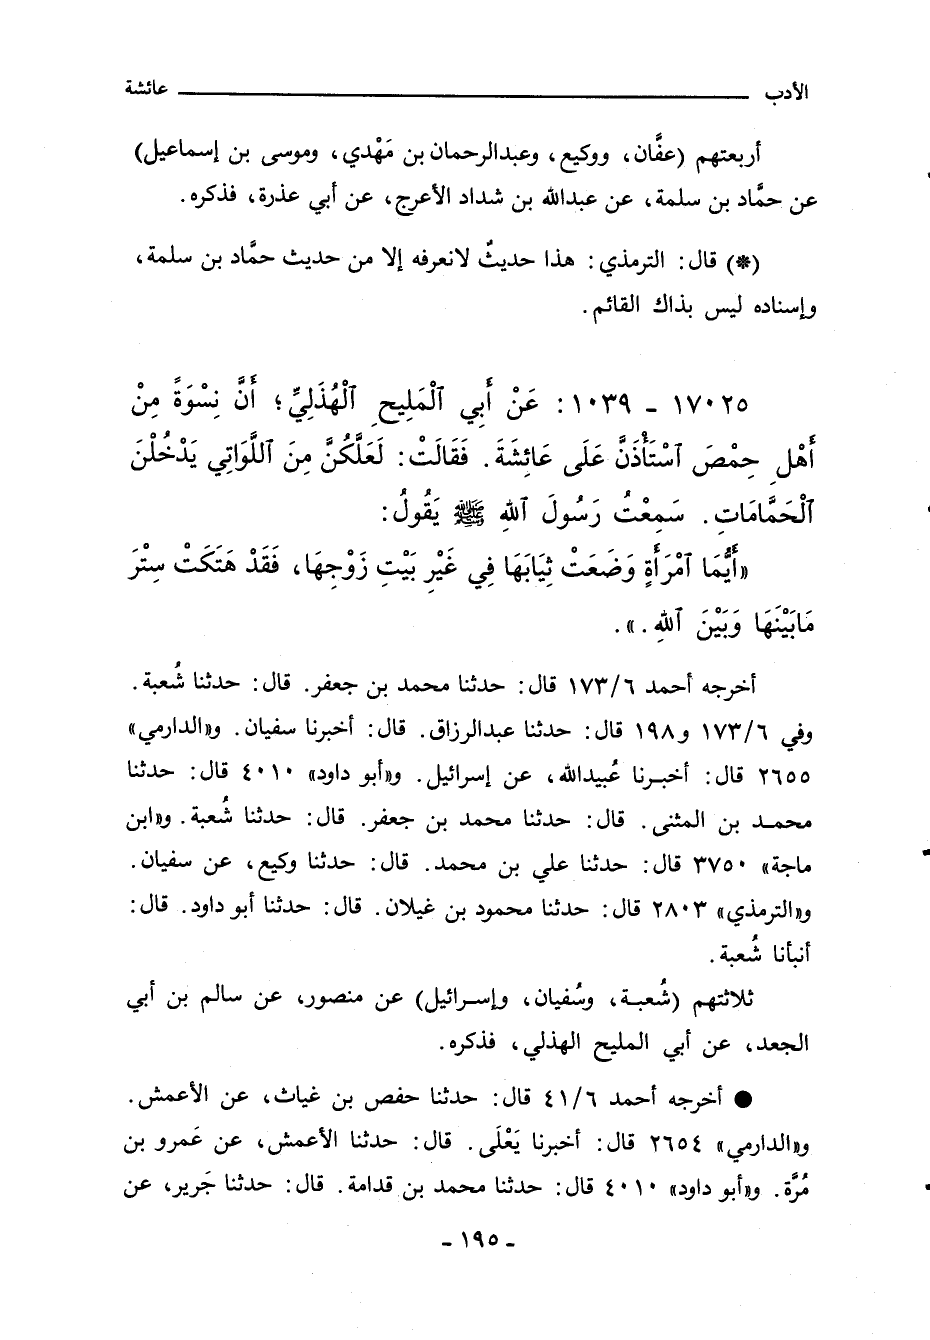 الأدب عائشة
أربعتهم (عفَّان، ووكيع، وعبدالرحمان بن مَهْدي، وموسى بن إسماعيل)
عن حمَّاد بن سلمة، عن عبدالله بن شداد الأعرج، عن أبي عذرة، فذكره.
(*) قال: الترمذي: هذا حديثٌ لانعرفه إلا من حديث حمَّاد بن سلمة،
وإسناده ليس بذاك القائم.
١٧٠٢٥ - ١٠٣٩: عَنْ أَبِي ٱلْمَلِيحِ ٱلْهُذَلِيِّ؛ أَنَّ نِسْوَةً مِنْ
أَهْلِ حِمْصَ ٱسْتَأْذَنَّ عَلَى عَائِشَةَ. فَقَالَتْ: لَعَلَّكُنَّ مِنَ اللَّوَاتِي يَدْخُلْنَ
ٱلْحَمَّامَاتِ. سَمِعْتُ رَسُولَ ٱللهِ ﷺ يَقُولُ:
«أَيُّمَا ٱمْرَأَةٍ وَضَعَتْ ثِيَابَهَا فِي غَيْرِ بَيْتِ زَوْجِهَا، فَقَدْ هَتَكَتْ سِتْرَ
مَابَيْنَهَا وَبَيْنَ ٱللهِ.».
أخرجه أحمد ١٧٣/٦ قال: حدثنا محمد بن جعفر. قال: حدثنا شُعبة.
وفي ١٧٣/٦ و١٩٨ قال: حدثنا عبدالرزاق. قال: أخبرنا سفيان. و«الدارمي»
٢٦٥٥ قال: أخبرنا عُبيدالله، عن إسرائيل. و«أبو داود» ٤٠١٠ قال: حدثنا
محمد بن المثنى. قال: حدثنا محمد بن جعفر. قال: حدثنا شُعبة. و«ابن
ماجة» ٣٧٥٠ قال: حدثنا علي بن محمد. قال: حدثنا وكيع، عن سفيان.
و«الترمذي» ٢٨٠٣ قال: حدثنا محمود بن غيلان. قال: حدثنا أبو داود. قال:
أنبأنا شُعبة.
ثلاثتهم (شُعبة، وسُفيان، وإسرائيل) عن منصور، عن سالم بن أبي
الجعد، عن أبي المليح الهذلي، فذكره.
● أخرجه أحمد ٤١/٦ قال: حدثنا حفص بن غياث، عن الأعمش.
و«الدارمي» ٢٦٥٤ قال: أخبرنا يَعْلَى. قال: حدثنا الأعمش، عن عَمرو بن
مُرَّة. و«أبو داود» ٤٠١٠ قال: حدثنا محمد بن قدامة. قال: حدثنا جَرير، عن
- ١٩٥ -